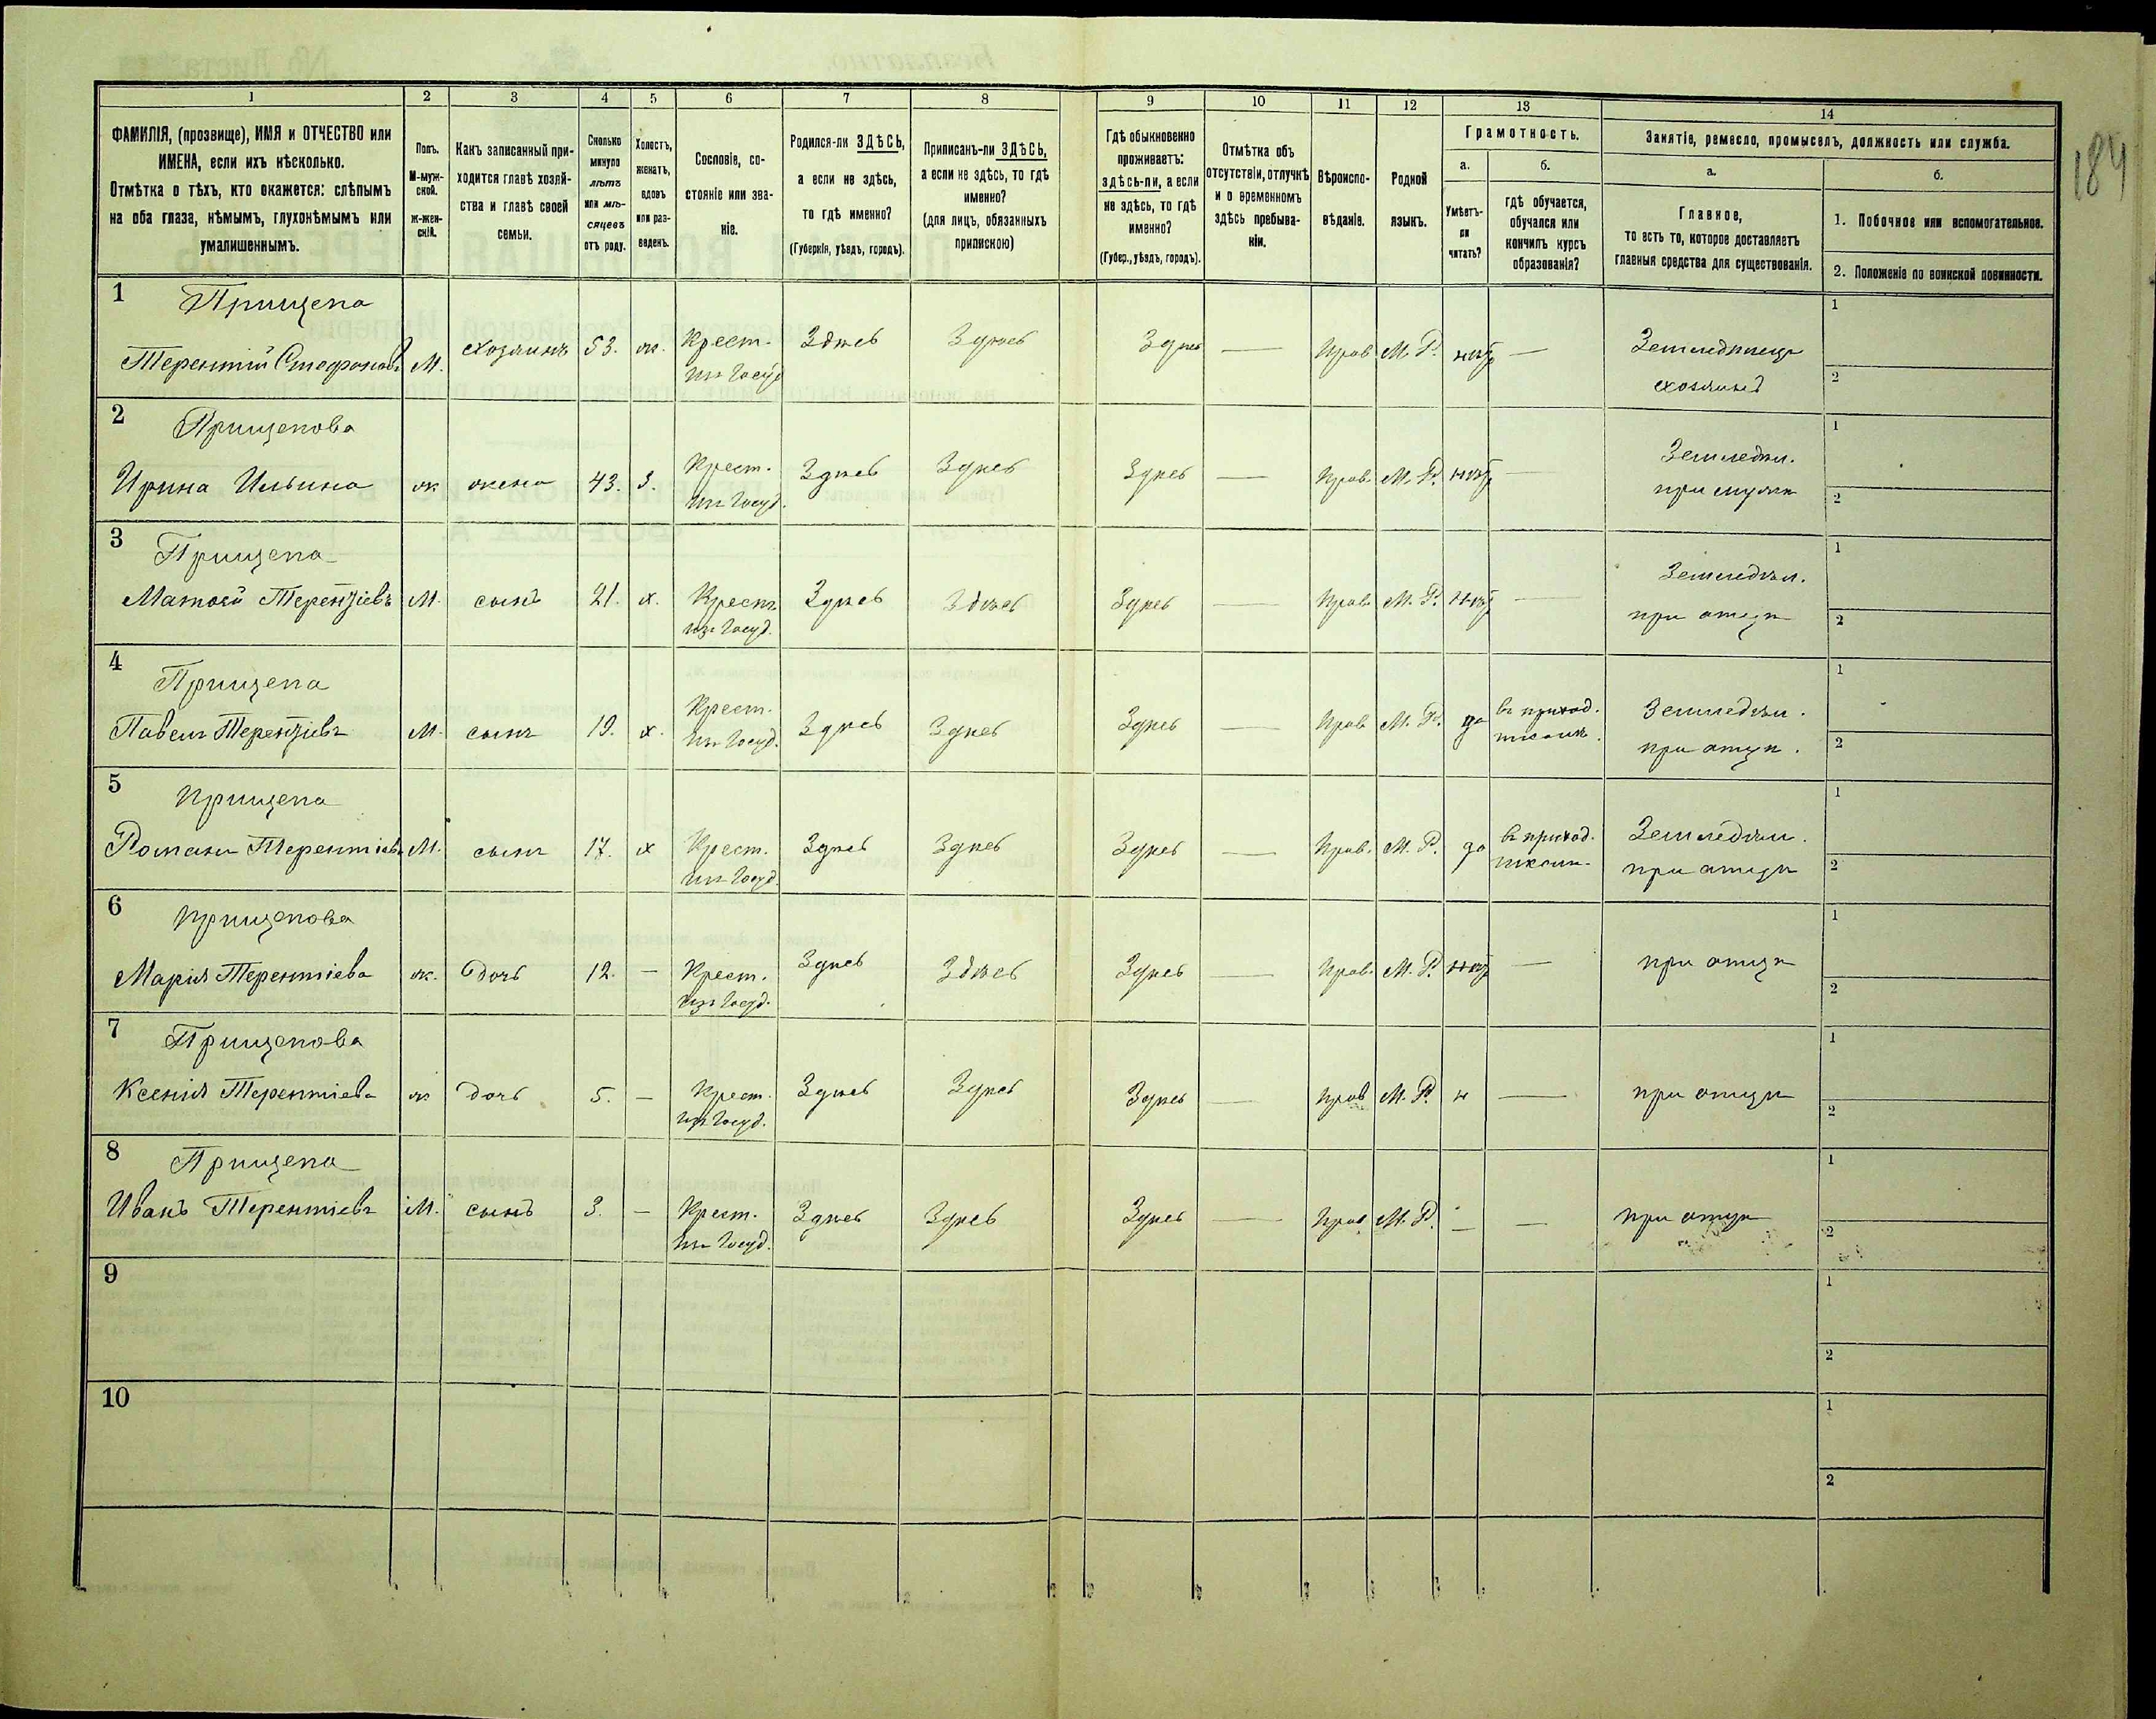 184
1
2
3
4
5
6
7
8
9
10
11
12
13
14
ФАМИЛІЯ, (прозвище), ИМЯ и ОТЧЕСТВО или
ИМЕНА, если ихъ нѣсколько.
Отмѣтка о тѣхъ, кто окажется: слѣпымъ
на оба глаза, нѣмымъ, глухонѣмымъ или
умалишеннымъ.
Полъ.
М-муж-
ской.
ж-жен-
скій.
Какъ записанный при-
ходится главѣ хозяй-
ства и главѣ своей
семьи.
Сколько
минуло
лѣтъ
или мѣ-
сяцевъ
отъ роду.
Холостъ,
женатъ,
вдовъ
или раз-
веденъ.
Сословіе, со-
стояніе или зва-
ніе.
Родился-ли ЗДѢСЬ,
а если не здѣсь,
то гдѣ именно?
(Губернія, уѣздъ, городъ).
Приписанъ-ли ЗДѢСЬ,
а если не здѣсь, то гдѣ
именно?
(для лицъ, обязанныхъ
припискою)
Гдѣ обыкновенно
проживаетъ:
здѣсь-ли, а если
не здѣсь, то гдѣ
именно?
(Губер., уѣздъ, городъ).
Отмѣтка объ
отсутствіи, отлучкѣ
и о временномъ
здѣсь пребыва-
ніи.
Вѣроиспо-
вѣданіе.
Родной
языкъ.
Грамотность.
а.
Умѣетъ-
ли
читать?
б.
гдѣ обучается,
обучался или
кончилъ курсъ
образованія?
Занятіе, ремесло, промыселъ, должность или служба.
а.
Главное,
то есть то, которое доставляетъ
главныя средства для существованія.
б.
1. Побочное или вспомогательное.
2. Положеніе по воинской повинности.
1 Прищепа
Терентій Стефановъ М. хозяинъ 53. ж. Крест. Здѣсь Здѣсь Здѣсь — Прав М. Р. нѣтъ — Земледѣлецъ
изъ Госуд хозяинъ
1
2
2 Прищепова
Ирина Ильина ж жена 43. З. Крест. Здѣсь Здѣсь Здѣсь — Прав. М. Р. нѣтъ — Земледѣл.
изъ Госуд. при мужѣ
1
2
3 Прищепа
Матвей Терентіевъ М. сынъ 21. х. Крест Здѣсь Здѣсь Здѣсь — Прав. М. Р. нѣтъ — Земледѣл.
изъ Госуд. при отцѣ
1
2
4 Прищепа
Павелъ Терентіевъ М. сынъ 19. х. Крест. Здѣсь Здѣсь Здѣсь — Прав М. Р. да въ приход. Земледѣл.
изъ Госуд. школѣ. при отцѣ.
1
2
5 Прищепа
Романъ Терентіевъ М. сынъ 17. х Крест. Здѣсь Здѣсь Здѣсь — Прав. М. Р. да въ приход. Земледѣл.
изъ Госуд. школѣ. при отцѣ
1
2
6 Прищепова
Марія Терентіева ж. дочь 12. — Крест. Здѣсь Здѣсь Здѣсь — Прав. М. Р. нѣтъ — при отцѣ
изъ Госуд.
1
2
7 Прищепова
Ксенія Терентіева ж дочь 5. — Крест. Здѣсь Здѣсь Здѣсь — Прав М. Р. н — при отцѣ
изъ Госуд.
1
2
8 Прищепа
Иванъ Терентіевъ М. сынъ 3. — Крест. Здѣсь Здѣсь Здѣсь — Прав М. Р. — — при отцѣ
изъ Госуд.
1
2
9
1
2
10
1
2